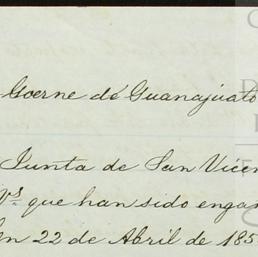 Goerne de Guanajuato
Junta de San Vicen
Vs que han sido engan
en 22 de Abril de 185